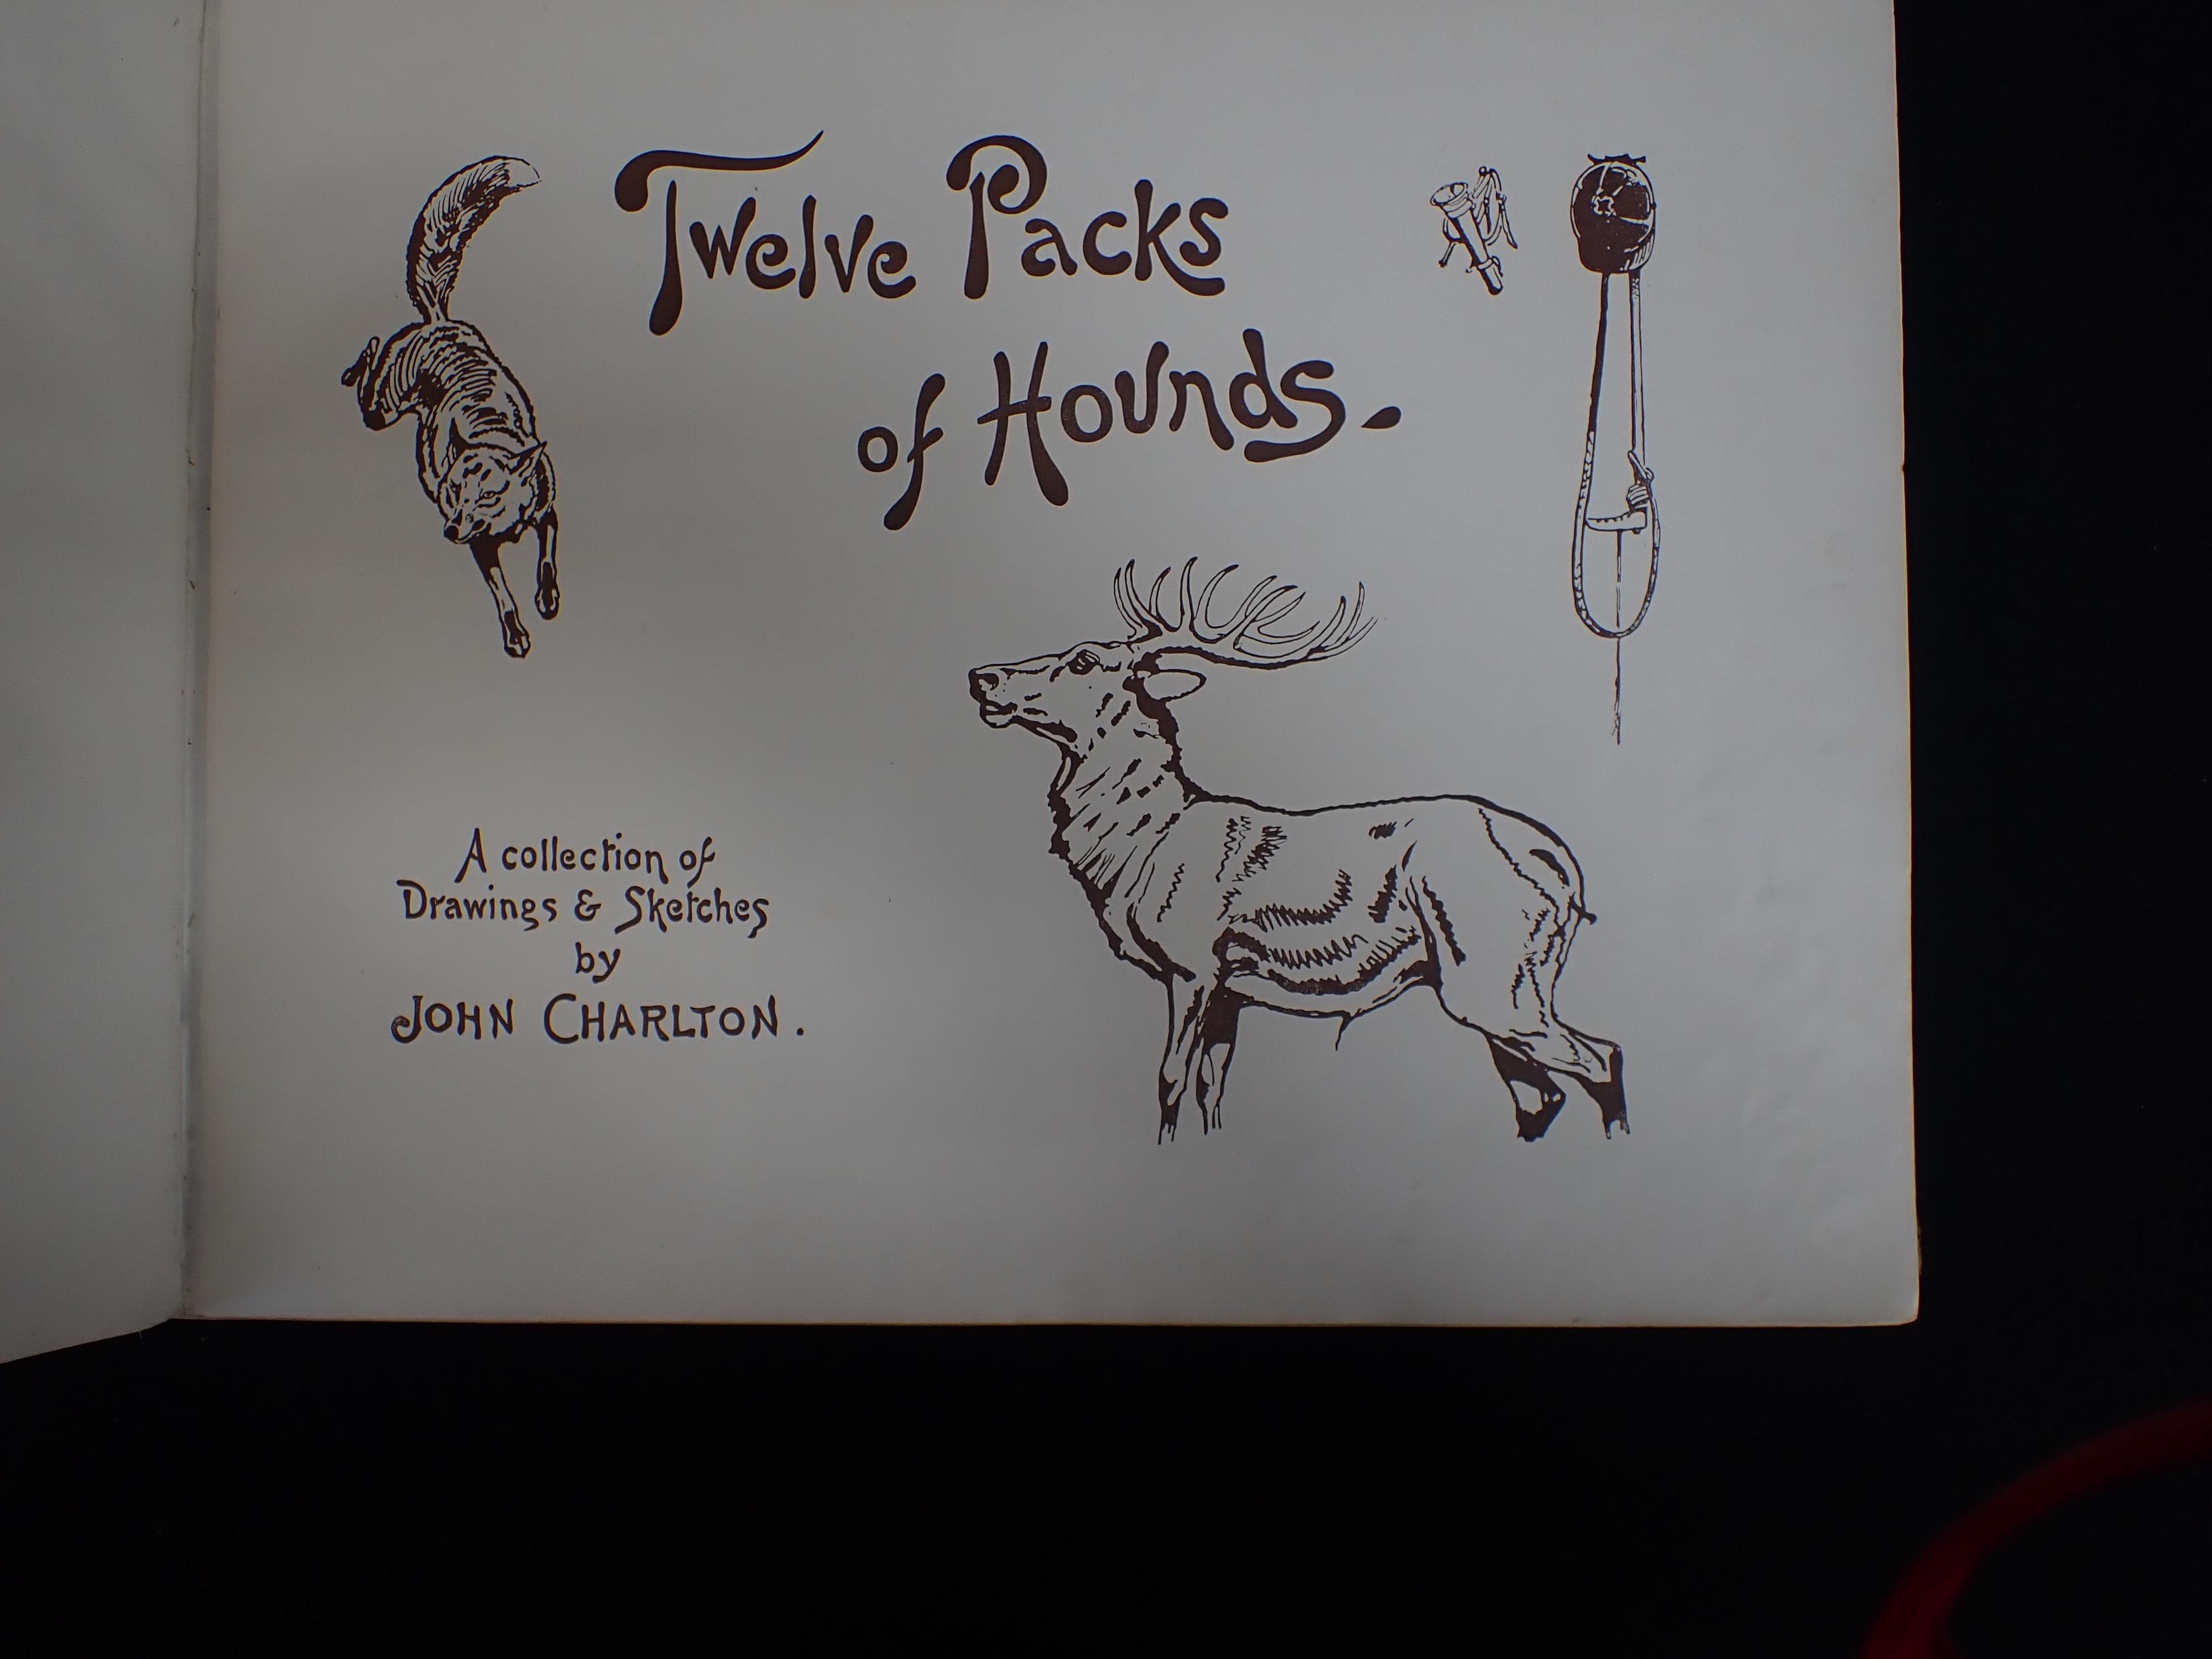 Twelve Packs
of Hounds.
A collection of
Drawings & Sketches
by
JOHN CHARLTON.